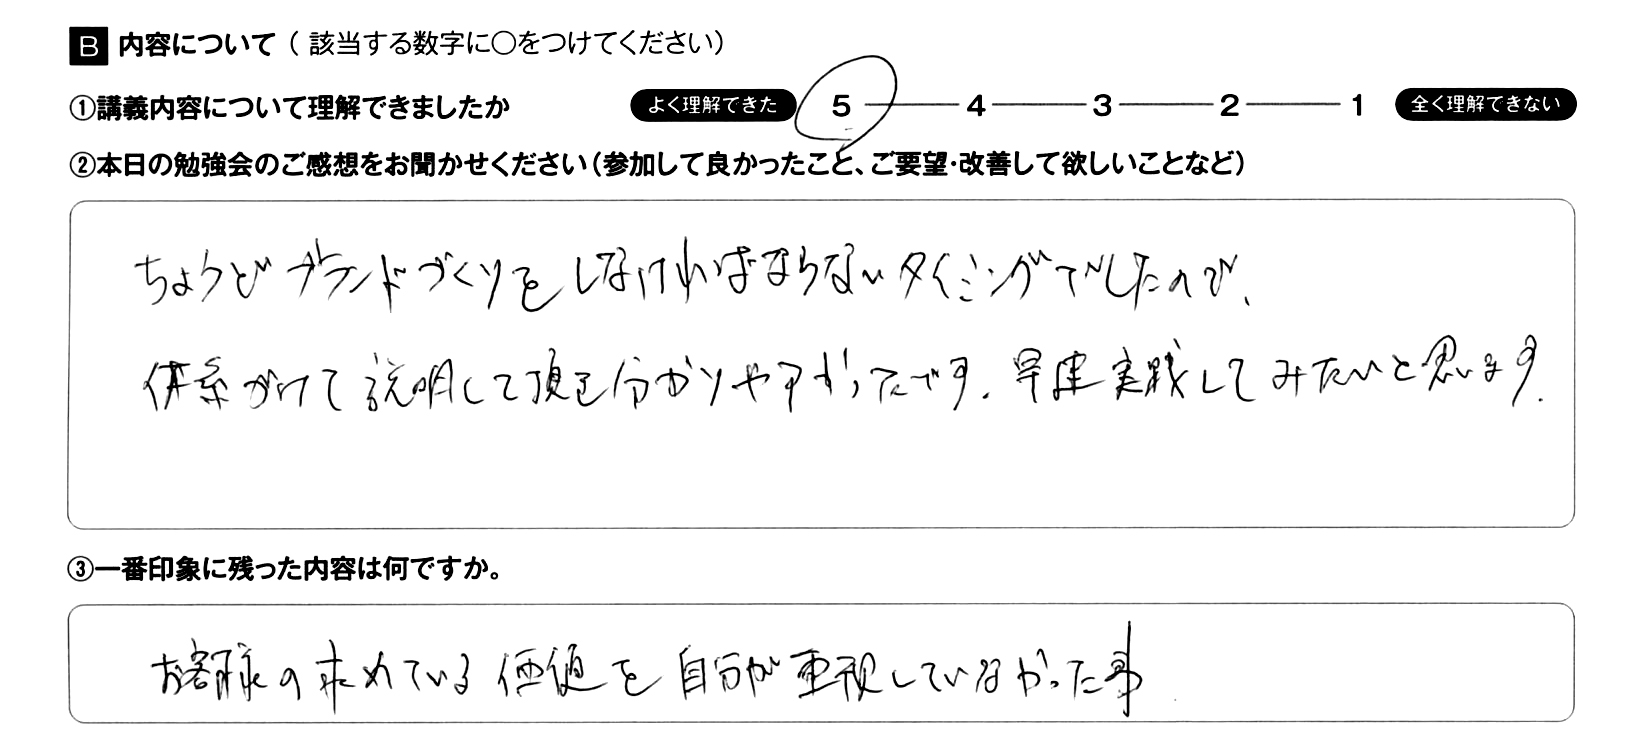 B 内容について（該当する数字に○をつけてください）
①講義内容について理解できましたか よく理解できた 5 4 3 2 1 全く理解できない
②本日の勉強会のご感想をお聞かせください（参加して良かったこと、ご要望・改善して欲しいことなど）
ちょうどブランドづくりをしなければならないタイミングでしたので、
体系づけて説明して頂き分かりやすかったです。早速実践してみたいと思います。
③一番印象に残った内容は何ですか。
お客様の求めている価値を自分が重視していなかった事